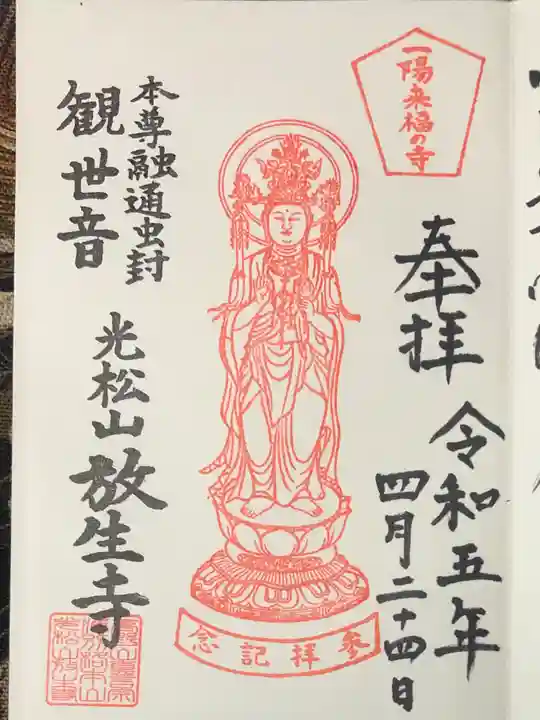 一陽来福の寺
奉拝
令和五年
四月二十四日
參拝記念
本尊融通虫封
観世音
光松山放生寺